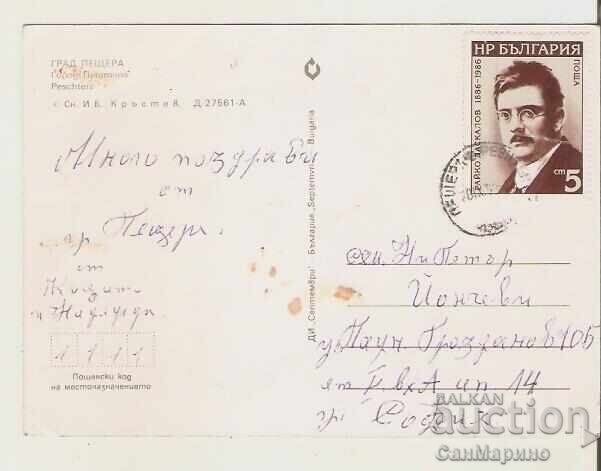 ГРАД ПЕЩЕРА
Peschtera
Сн. Ив. Кръстев. Д-27561-А
Много поздрави
от
гр Пещера
от
и Надежда
1 1 1 1
Пощенски код
на местоназначението
ДИ „Септември“ България „Septemvri“ Bulgaria
НР БЪЛГАРИЯ
ПОЩА
РАЙКО ДАСКАЛОВ 1886-1986
ст 5
сем. Н и Петър
Йончеви
ул Паун Грозданов 105
ет вх А ап 14
гр. София
BALKAN
auction
СанМарино